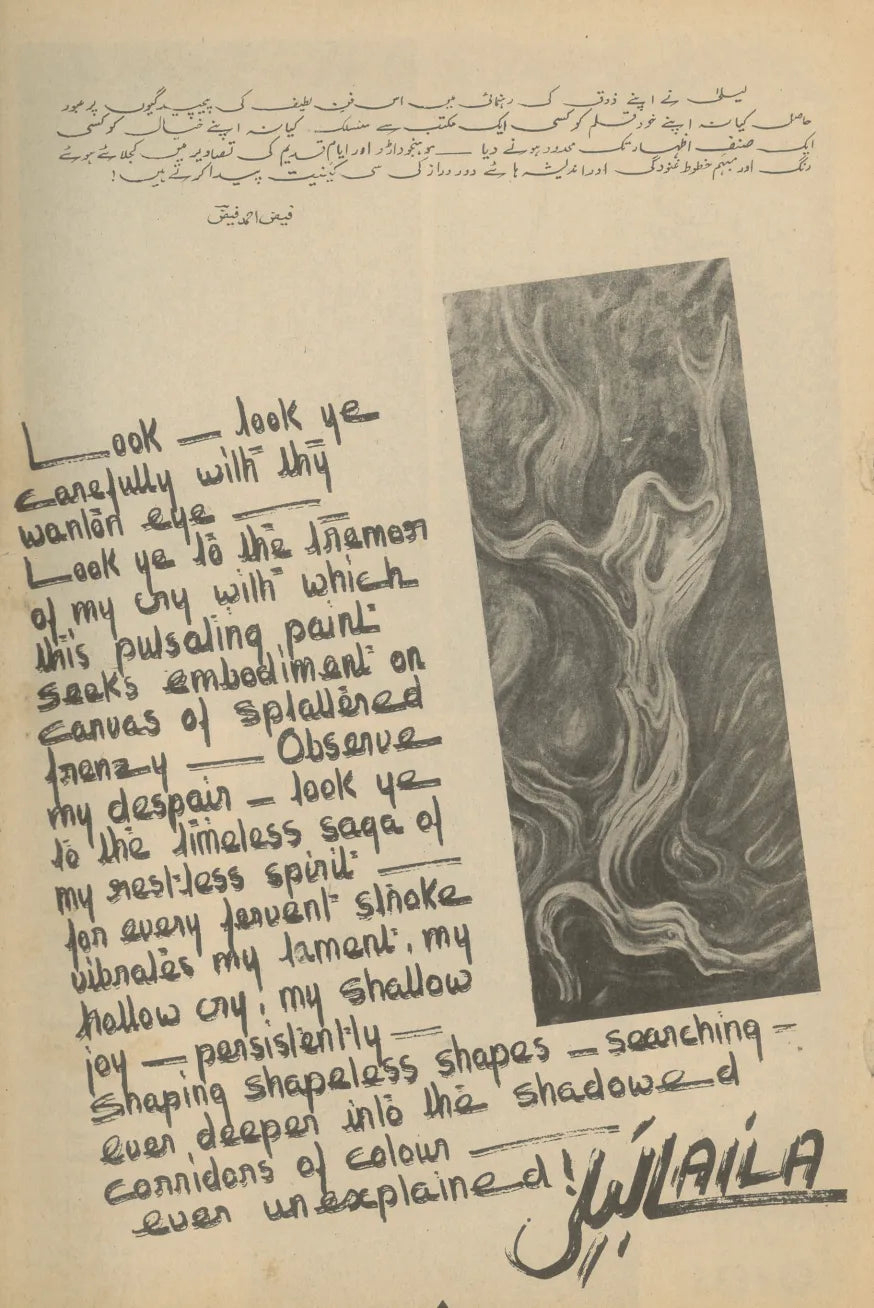 لیلیٰ نے اپنے ذوق کی رہنمائی میں اس فنِ لطیف کی پیچیدگیوں پر عبور
حاصل کیا نہ اپنے خود قلم کو کسی ایک مکتب سے منسلک کیا نہ اپنے خیال کو کسی
ایک صنفِ اظہار تک محدود ہونے دیا — موہنجوداڑو اور ایامِ قدیم کی تصاویر میں کجلائے ہوئے
رنگ اور مبہم خطوط غنودگی اور اندیشہ ہائے دور دراز کی سی کیفیت پیدا کرتے ہیں!
فیض احمد فیض
Look — look ye
carefully with thy
wanton eye —
Look ye to the tremor
of my cry with which
this pulsating paint
seeks embodiment on
canvas of splattered
frenzy — Observe
my despair — look ye
to the timeless saga of
my restless spirit —
for every fervent stroke
vibrates my lament, my
hollow cry, my shallow
joy — persistently —
shaping shapeless shapes — searching —
ever deeper into the shadowed
corridors of colour —
ever unexplained!
لیلیٰ LAILA